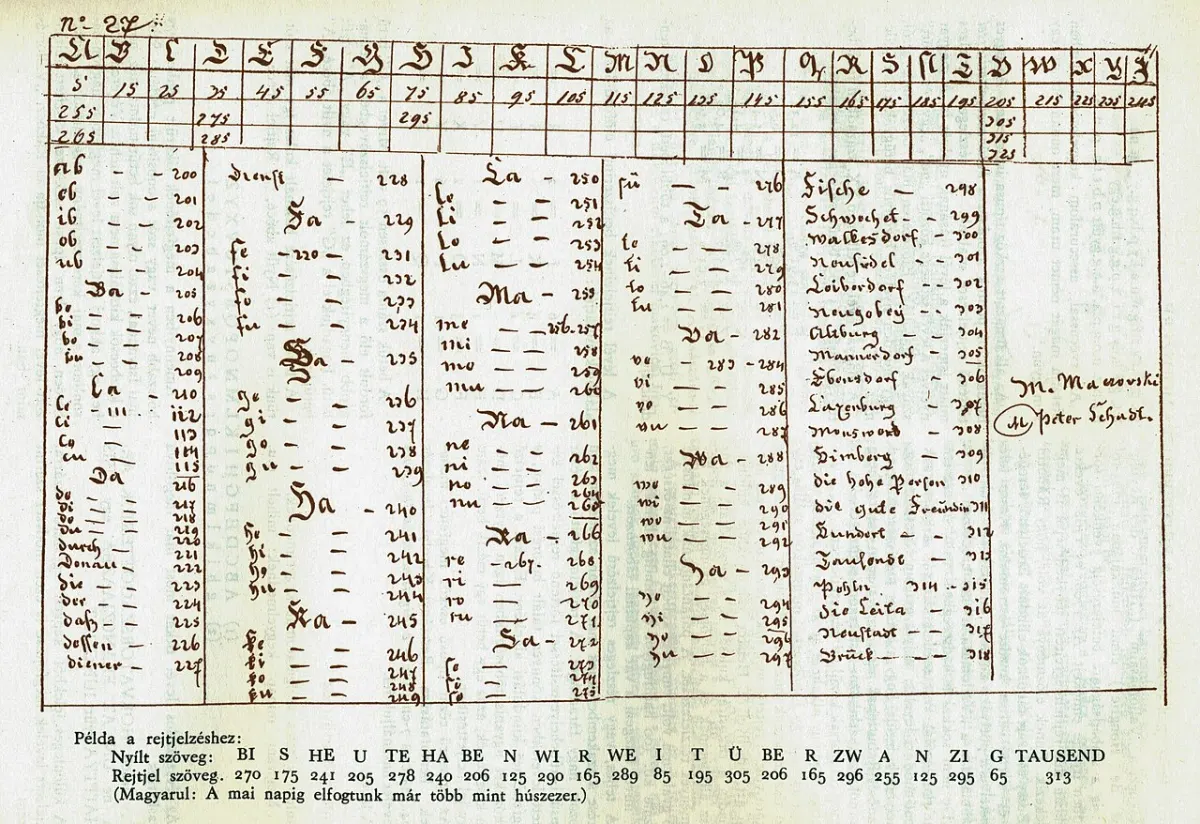 nº 27
A B C D E F G H I K L M N O P Q R S T U W X Y Z
5 15 25 35 45 55 65 75 85 95 105 115 125 135 145 155 165 175 185 195 205 215 225 235 245
255 275 295 305
265 285 315
325
ab - - 200
eb - - 201
ib - - 202
ob - - 203
ub - - 204
Ba - 205
be - - 206
bi - - 207
bo - - 208
bu - - 209
Ca - 210
Ce - 111 112
Ci - - 113
Co - - 114
cu - - 115
Da - 216
de - - 217
di - - 218
do - - 219
du - - 220
durch - 221
Donau - 222
die - - 223
der - - 224
daß - - 225
dessen - 226
diener - 227
Dienst 228
Fa - 229
fe - 220 - 231
fi - - 232
fo - - 233
fu - - 234
Ga - 235
ge - - 236
gi - - 237
go - - 238
gu - - 239
Ha - 240
he - - 241
hi - - 242
ho - - 243
hu - - 244
Ka - 245
ke - - 246
ki - - 247
ko - - 248
ku - - 249
La - 250
le - - 251
li - - 252
lo - - 253
lu - - 254
Ma - 255
me - - 256-257
mi - - 258
mo - - 259
mu - - 260
Na - 261
ne - - 262
ni - - 263
no - - 264
nu - - 265
Ra - 266
re - 267 - 268
ri - - 269
ro - - 270
ru - - 271
Sa - 272
se - 273
si - 274
so - 275
sü - - 276
Ta - 277
te - - 278
ti - - 279
to - - 280
tu - - 281
Va - 282
ve - 283 - 284
vi - - 285
vo - - 286
vu - - 287
Wa - 288
we - - 289
wi - - 290
wo - - 291
wu - - 292
Za - 293
ze - - 294
zi - - 295
zo - - 296
zu - - 297
Fische - 298
Schwechet - - 299
Walkesdorf - 300
Neusidel - - 301
Loibersdorf - - 302
Neugebey - - 303
Altburg - - 304
Mannersdorf - 305
Ebensdorf - 306
Laxenburg - 307
308
Himberg - 309
die hohe Person 310
die gute Freündin 311
Hundert - - 312
Tausendt - 313
Pohln 314 - 315
die Leita - 316
Neustadt - - 317
Bruck - - 318
Peter Schadt.
Példa a rejtjelzéshez:
Nyílt szöveg: BI S HE U TE HA BE N WI R WE I T Ü BE R ZW A N ZI G TAUSEND
Rejtjel szöveg. 270 175 241 205 278 240 206 125 290 165 289 85 195 305 206 165 296 255 125 295 65 313
(Magyarul: A mai napig elfogtunk már több mint húszezer.)